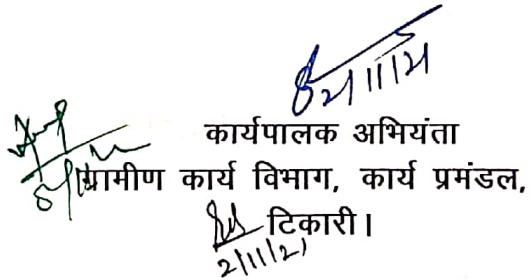 2/11/21
कार्यपालक अभियंता
ग्रामीण कार्य विभाग, कार्य प्रमंडल,
टिकारी।
2/11/21